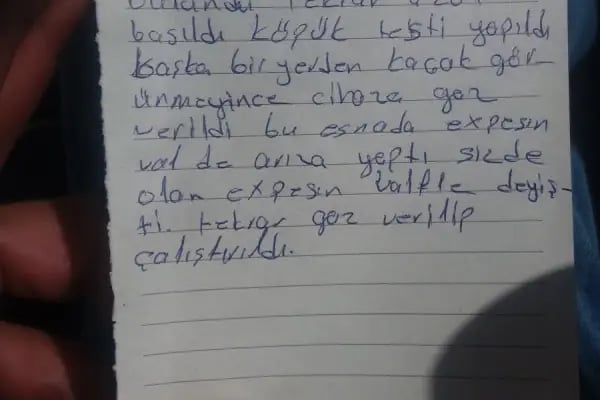 tekrar
basıldı köpük testi yapıldı
başka bir yerden kaçak gör-
ünmeyince cihaza gaz
verildi bu esnada expesın
val de arıza yaptı sizde
olan expesın valfle deyiş-
ti. tekrar gaz verilip
çalıştırıldı.